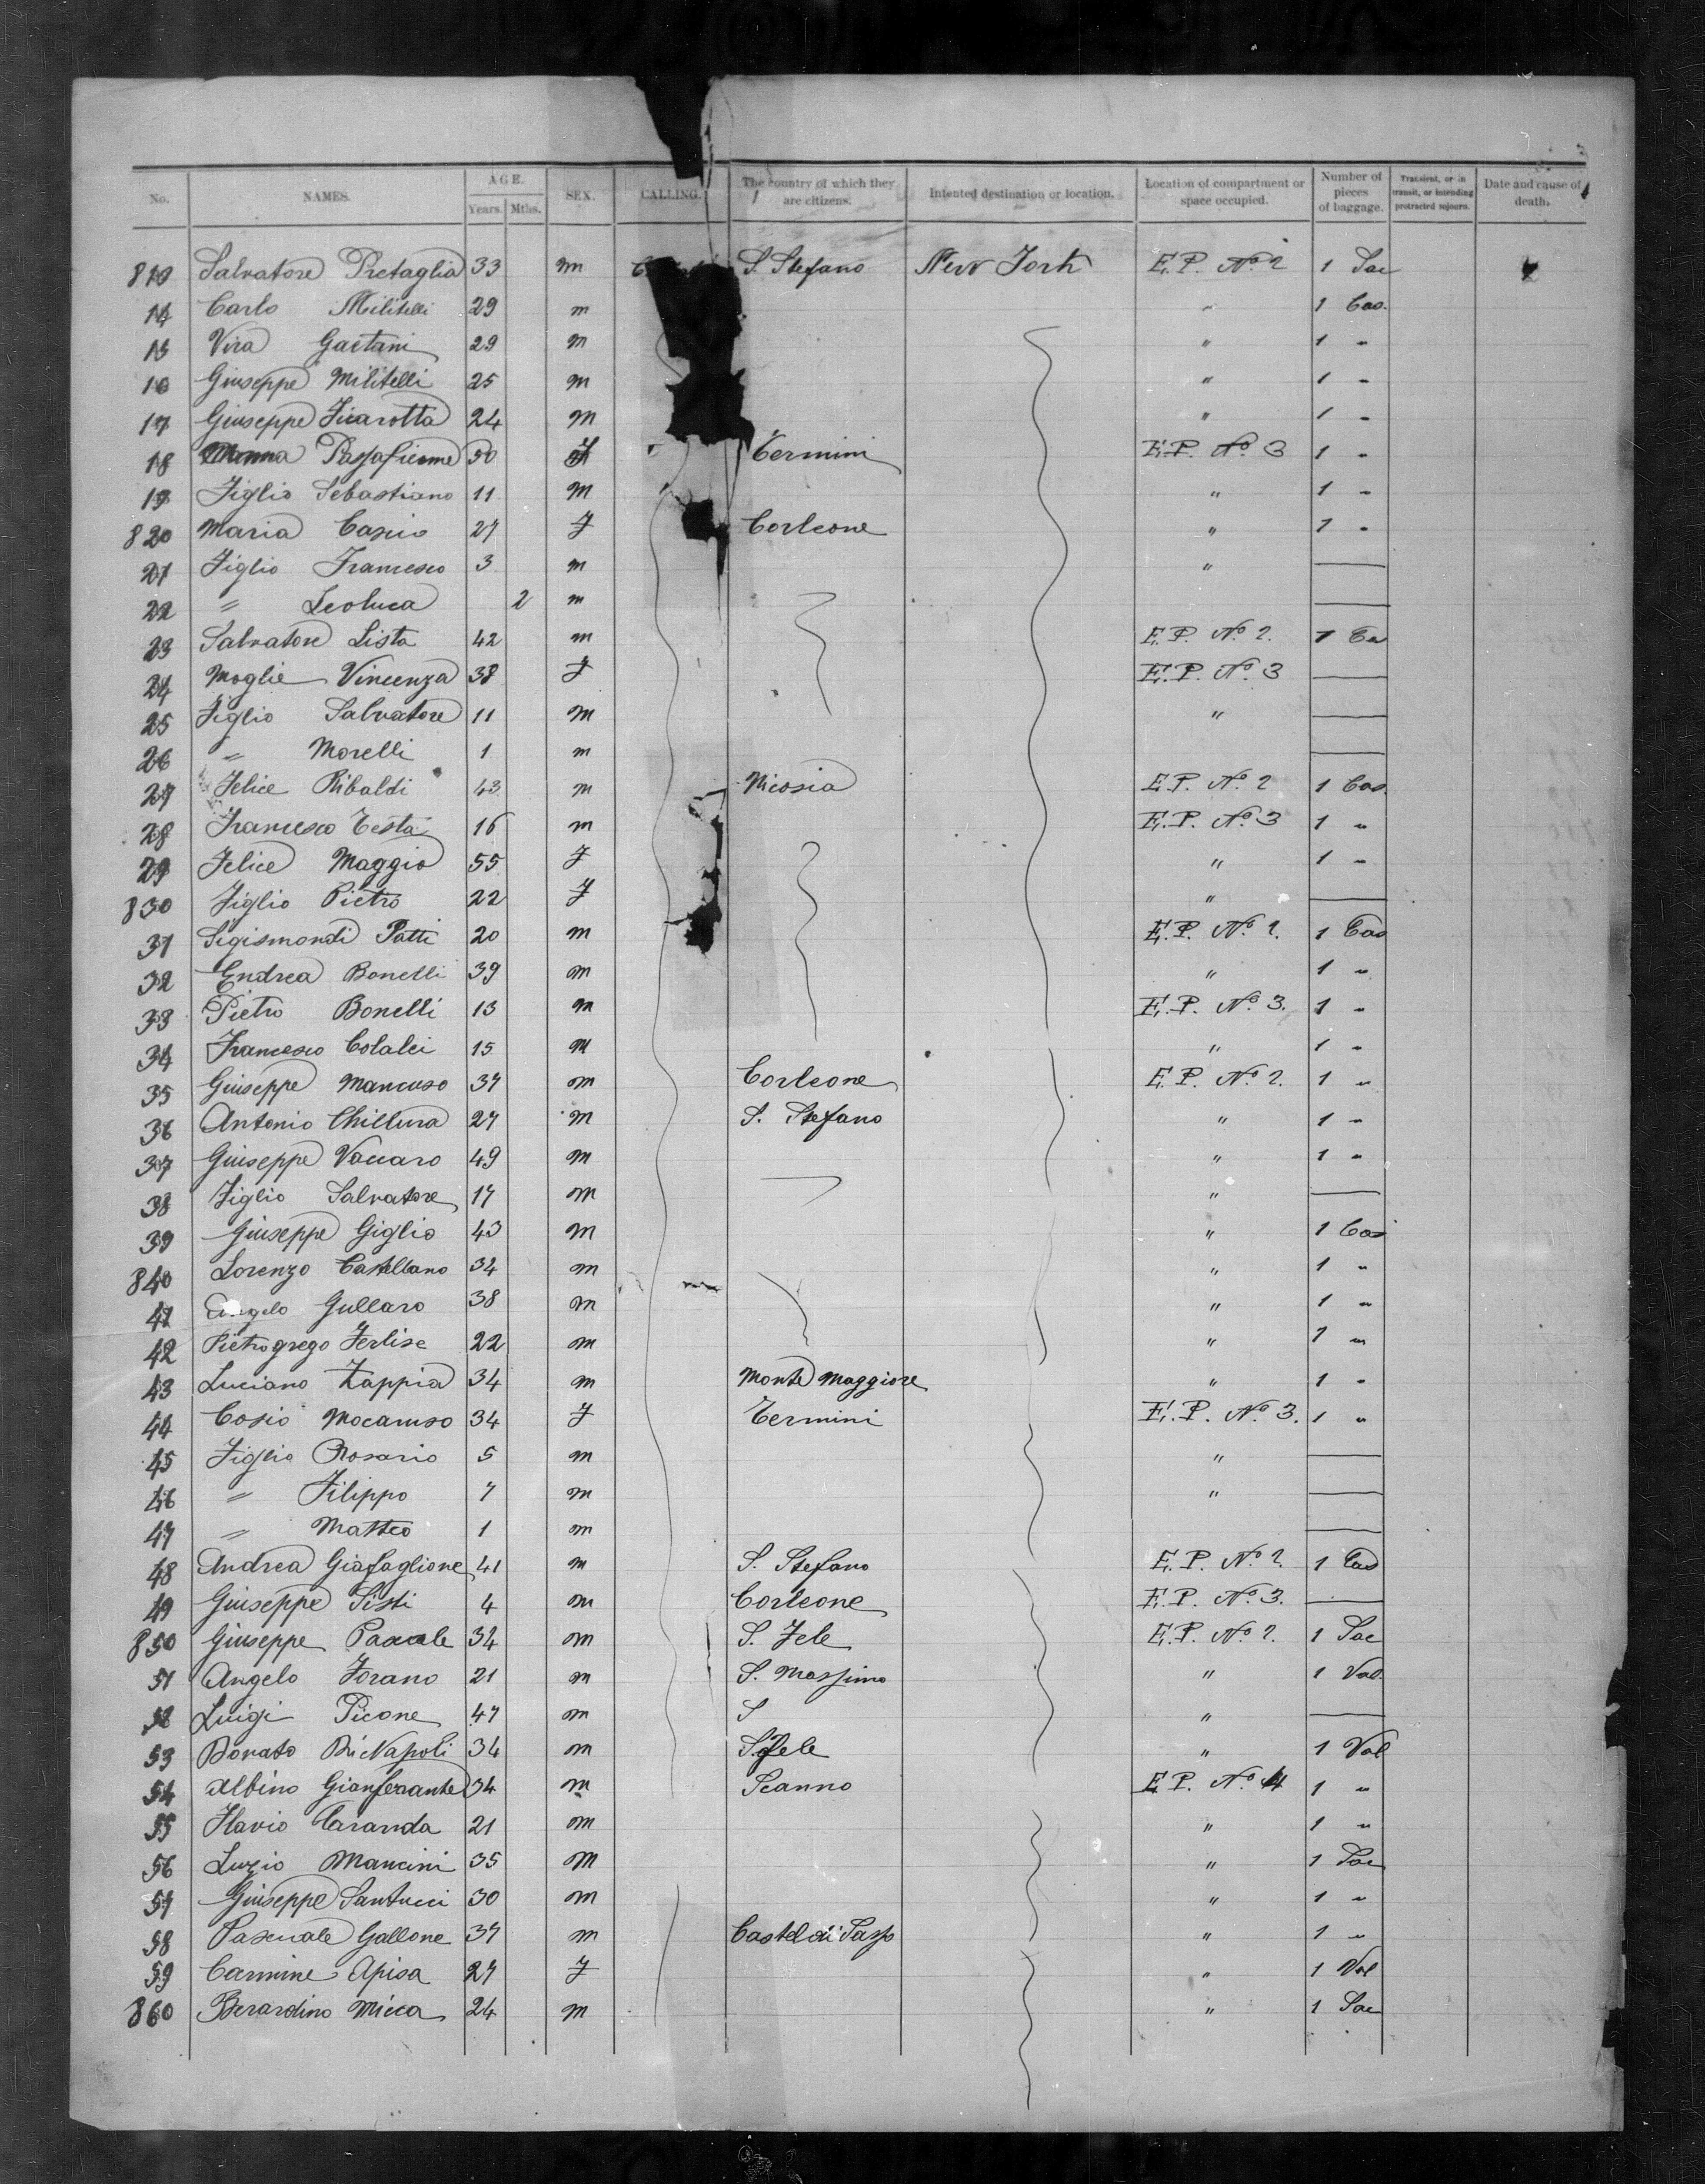 No. NAMES. AGE. Years. Mths. SEX. CALLING. The country of which they are citizens. Intented destination or location. Location of compartment or space occupied. Number of pieces of baggage. Transient, or in transit, or intending protracted sojourn. Date and cause of death.
Salvatore Pretaglia 33 m S. Stefano New York E.P. No. 2 1 Sac
14 Carlo Militelli 29 m " 1 Cas.
15 Vira Gaetani 29 m " 1 "
16 Giuseppe Militelli 25 m " 1 "
17 Giuseppe Ficarotta 24 m " 1 "
18 Passafiume 50 f Termini E.P. No. 3 1 "
19 Figlio Sebastiano 11 m " 1 "
820 Maria Cascio 27 f Corleone " 1 "
21 Figlio Francesco 3 m " —
22 " Leoluca 2 m —
23 Salvatore Lista 42 m E.P. No. 2. 1 Cas
24 Moglie Vincenza 38 f E.P. No. 3 —
25 Figlio Salvatore 11 m " —
26 " Morelli 1 m —
27 Felice Ribaldi 43 m Nicosia E.P. No. 2 1 Cas.
28 Francesco Testa 16 m E.P. No. 3 1 "
29 Felice Maggio 55 f " 1 "
830 Figlio Pietro 22 f " —
31 Sigismondi Patti 20 m E.P. No. 2. 1 Cas
32 Endrea Bonelli 39 m " 1 "
33 Pietro Bonelli 13 m E.P. No. 3. 1 "
34 Francesco Colalei 15 m " 1 "
35 Giuseppe Mancuso 37 m Corleone E.P. No. 2. 1 "
36 Antonio Chillura 27 m S. Stefano " 1 "
37 Giuseppe Vaccaro 49 m " 1 "
38 Figlio Salvatore 17 m " —
39 Giuseppe Giglio 43 m " 1 Cas
840 Lorenzo Castellano 32 m " 1 "
41 Angelo Gullaro 38 m " 1 "
42 Pietrogrego Ferlise 22 m " 1 "
43 Luciano Zappia 34 m Monte Maggiore " 1 "
44 Cosio Mocaruso 34 f Termini E.P. No. 3. 1 "
45 Figlio Rosario 5 m " —
46 " Filippo 7 m " —
47 " Matteo 1 m —
48 Andrea Giafaglione 41 m S. Stefano E.P. No. 2 1 Cas
49 Giuseppe Sisti 4 m Corleone E.P. No. 3. —
850 Giuseppe Pascale 32 m S. Fele E.P. No. 2. 1 Sac
51 Angelo Forano 21 m S. Massimo " 1 Val.
52 Luigi Picone 47 m S " —
53 Donato Di Napoli 34 m S. Fele " 1 Val
54 Albino Gianferante 34 m Scanno E.P. No. 4 1 "
55 Flavio Caranda 21 m " 1 "
56 Luzio Mancini 35 m " 1 Sac
57 Giuseppe Santucci 30 m " 1 "
58 Pascuale Gallone 37 m Castel di Sasso " 1 "
59 Carmine Apisa 27 f " 1 Val
860 Berardino Micca 24 m " 1 Sac